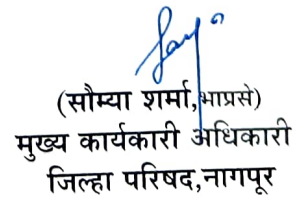 (सौम्या शर्मा,भाप्रसे)
मुख्य कार्यकारी अधिकारी
जिल्हा परिषद,नागपूर